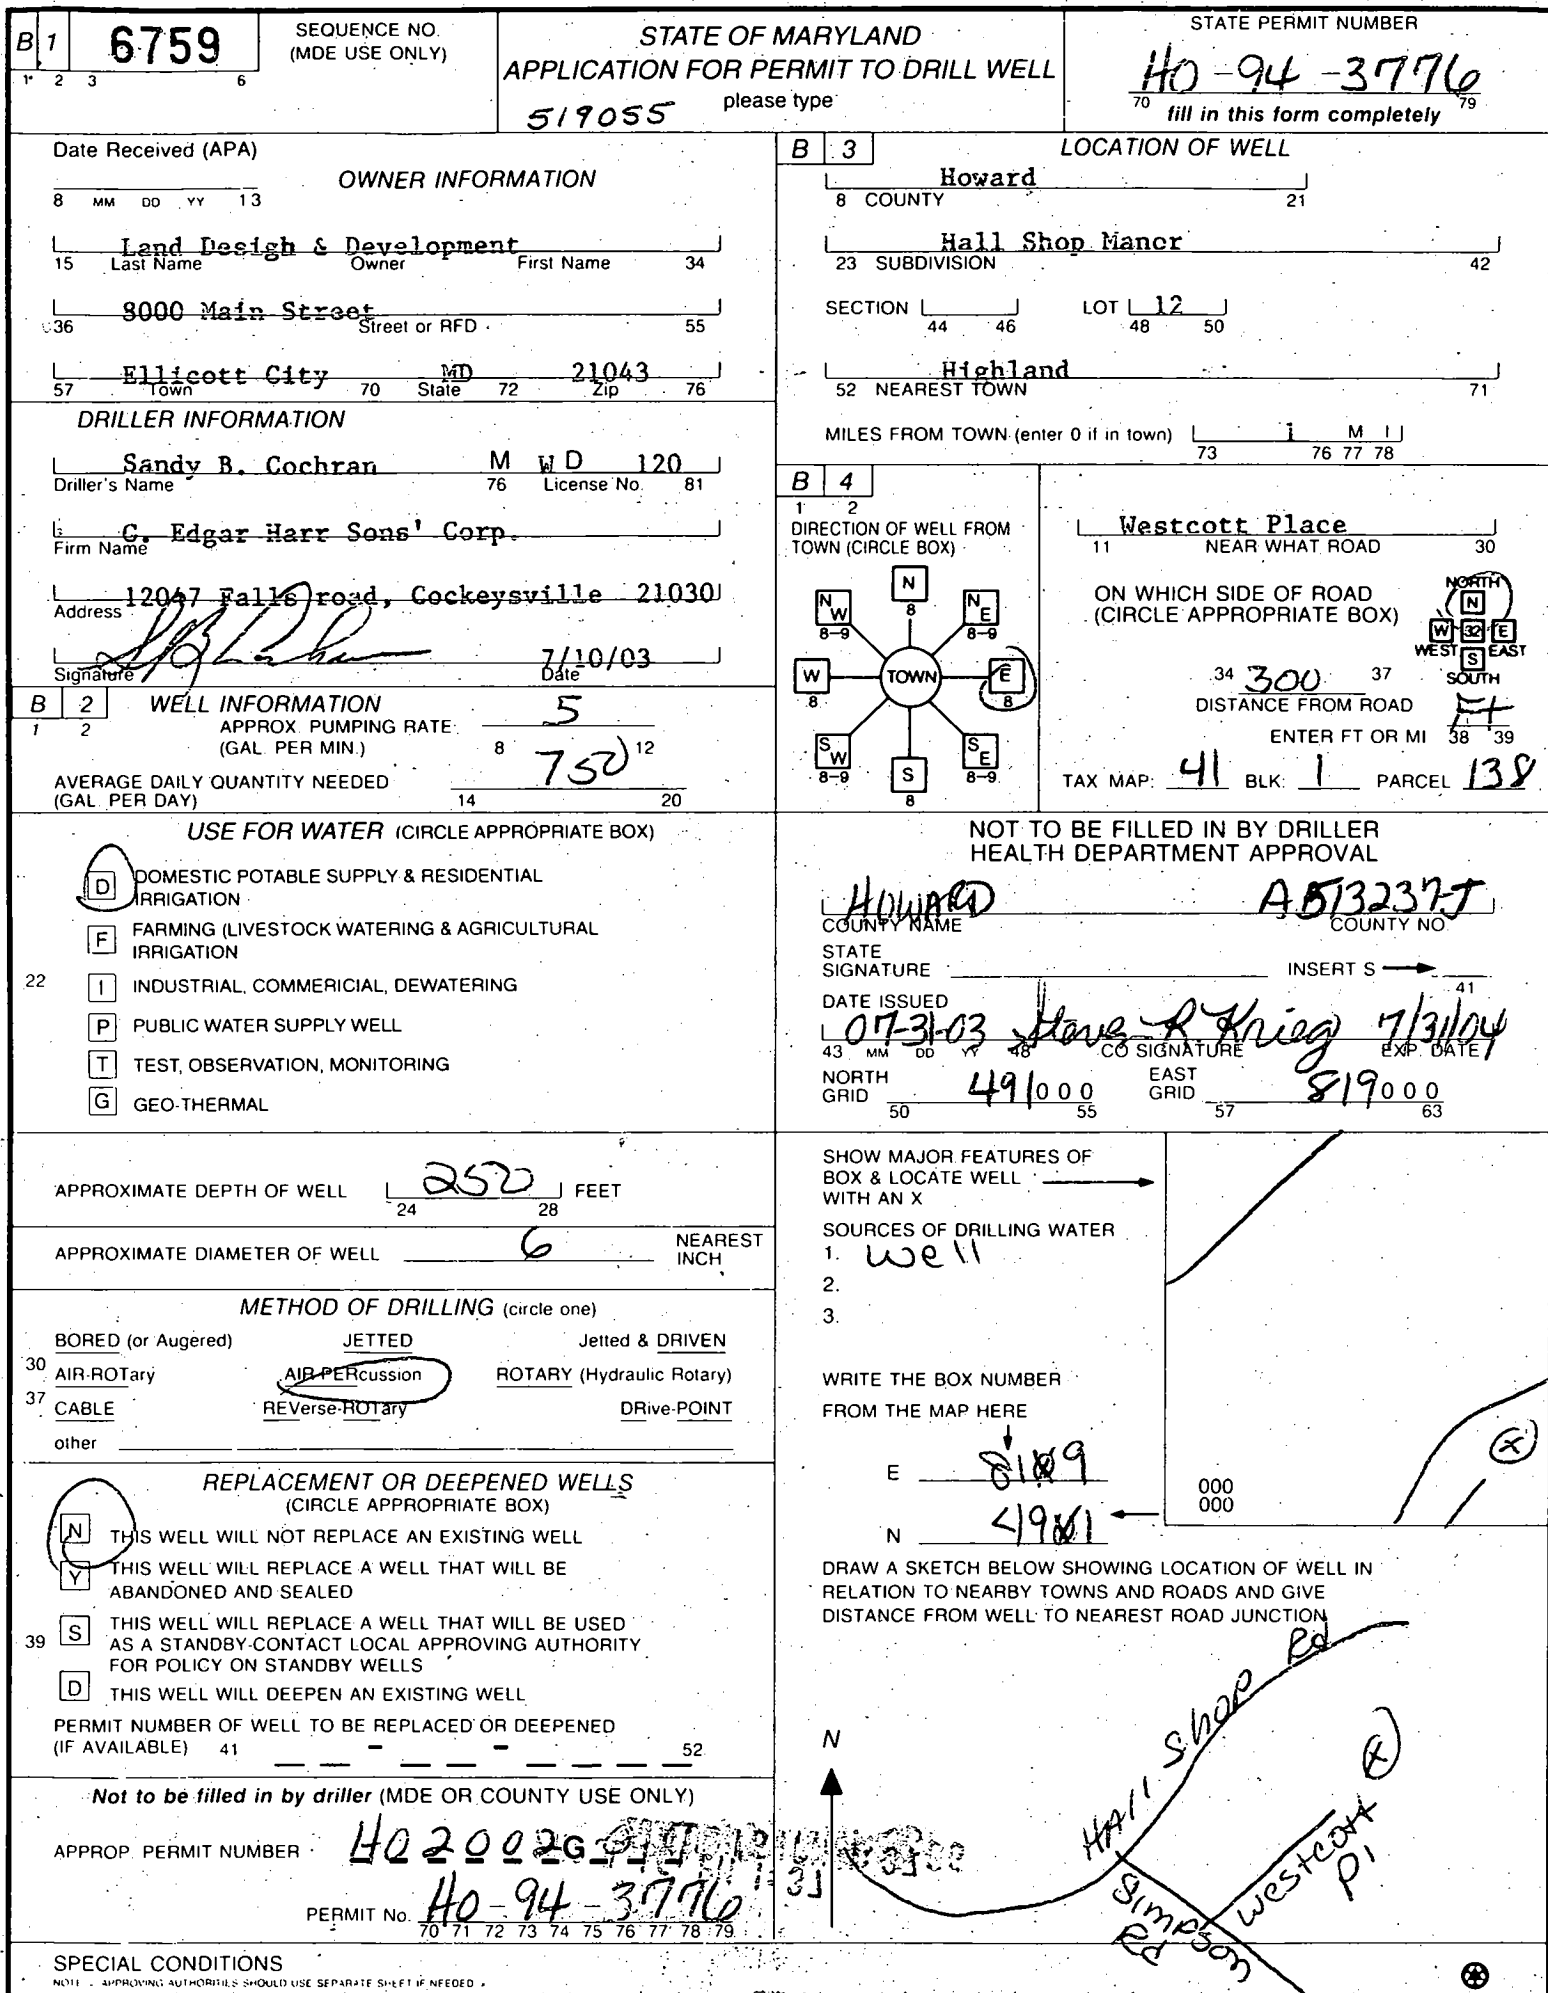 B 1 6759 SEQUENCE NO. (MDE USE ONLY)
1 2 3 6
STATE OF MARYLAND
APPLICATION FOR PERMIT TO DRILL WELL
please type
519055
STATE PERMIT NUMBER
HO-94-3776
70 79
fill in this form completely
Date Received (APA)
8 MM DD YY 13
OWNER INFORMATION
Land Desigh & Development
15 Last Name Owner First Name 34
8000 Main Street
36 Street or RFD 55
Ellicott City MD 21043
57 Town 70 State 72 Zip 76
DRILLER INFORMATION
Sandy B. Cochran M W D 120
Driller's Name 76 License No. 81
G. Edgar Harr Sons' Corp.
Firm Name
12047 Falls road, Cockeysville 21030
Address
7/10/03
Signature Date
B 2 WELL INFORMATION
1 2
APPROX. PUMPING RATE 5
(GAL. PER MIN.) 8 12
AVERAGE DAILY QUANTITY NEEDED 750
(GAL. PER DAY) 14 20
USE FOR WATER (CIRCLE APPROPRIATE BOX)
D DOMESTIC POTABLE SUPPLY & RESIDENTIAL
IRRIGATION
F FARMING (LIVESTOCK WATERING & AGRICULTURAL
IRRIGATION
22 I INDUSTRIAL, COMMERICIAL, DEWATERING
P PUBLIC WATER SUPPLY WELL
T TEST, OBSERVATION, MONITORING
G GEO-THERMAL
APPROXIMATE DEPTH OF WELL 250 FEET
24 28
APPROXIMATE DIAMETER OF WELL 6 NEAREST INCH
METHOD OF DRILLING (circle one)
BORED (or Augered) JETTED Jetted & DRIVEN
30 AIR-ROTary AIR-PERcussion ROTARY (Hydraulic Rotary)
37 CABLE REVerse-ROTary DRive-POINT
other
REPLACEMENT OR DEEPENED WELLS
(CIRCLE APPROPRIATE BOX)
N THIS WELL WILL NOT REPLACE AN EXISTING WELL
Y THIS WELL WILL REPLACE A WELL THAT WILL BE
ABANDONED AND SEALED
39 S THIS WELL WILL REPLACE A WELL THAT WILL BE USED
AS A STANDBY-CONTACT LOCAL APPROVING AUTHORITY
FOR POLICY ON STANDBY WELLS
D THIS WELL WILL DEEPEN AN EXISTING WELL
PERMIT NUMBER OF WELL TO BE REPLACED OR DEEPENED
(IF AVAILABLE) 41 - - 52
Not to be filled in by driller (MDE OR COUNTY USE ONLY)
APPROP. PERMIT NUMBER HO2002G
PERMIT No. HO-94-3776
70 71 72 73 74 75 76 77 78 79
SPECIAL CONDITIONS
NOTE - APPROVING AUTHORITIES SHOULD USE SEPARATE SHEET IF NEEDED
B 3 LOCATION OF WELL
Howard
8 COUNTY 21
Hall Shop Manor
23 SUBDIVISION 42
SECTION LOT 12
44 46 48 50
Highland
52 NEAREST TOWN 71
MILES FROM TOWN (enter 0 if in town) 1 M I
73 76 77 78
B 4
1 2
DIRECTION OF WELL FROM
TOWN (CIRCLE BOX)
N
8
NW NE
8-9 8-9
W TOWN E
8 8
SW SE
8-9 8-9
S
8
Westcott Place
11 NEAR WHAT ROAD 30
ON WHICH SIDE OF ROAD
(CIRCLE APPROPRIATE BOX)
NORTH
N
W 32 E
WEST EAST
S
SOUTH
34 300 37
DISTANCE FROM ROAD Ft
ENTER FT OR MI 38 39
TAX MAP: 41 BLK: 1 PARCEL 138
NOT TO BE FILLED IN BY DRILLER
HEALTH DEPARTMENT APPROVAL
HOWARD A513237-J
COUNTY NAME COUNTY NO.
STATE
SIGNATURE INSERT S
41
DATE ISSUED
07-31-03 Steve R. Krieg 7/31/04
43 MM DD YY 48 CO SIGNATURE EXP. DATE
NORTH GRID 491000 EAST GRID 819000
50 55 57 63
SHOW MAJOR FEATURES OF
BOX & LOCATE WELL
WITH AN X
SOURCES OF DRILLING WATER
1. well
2.
3.
WRITE THE BOX NUMBER
FROM THE MAP HERE
E 819
N 491
000
000
X
DRAW A SKETCH BELOW SHOWING LOCATION OF WELL IN
RELATION TO NEARBY TOWNS AND ROADS AND GIVE
DISTANCE FROM WELL TO NEAREST ROAD JUNCTION
N
HAll Shop Rd
X
Westcott Pl
Simpson Rd